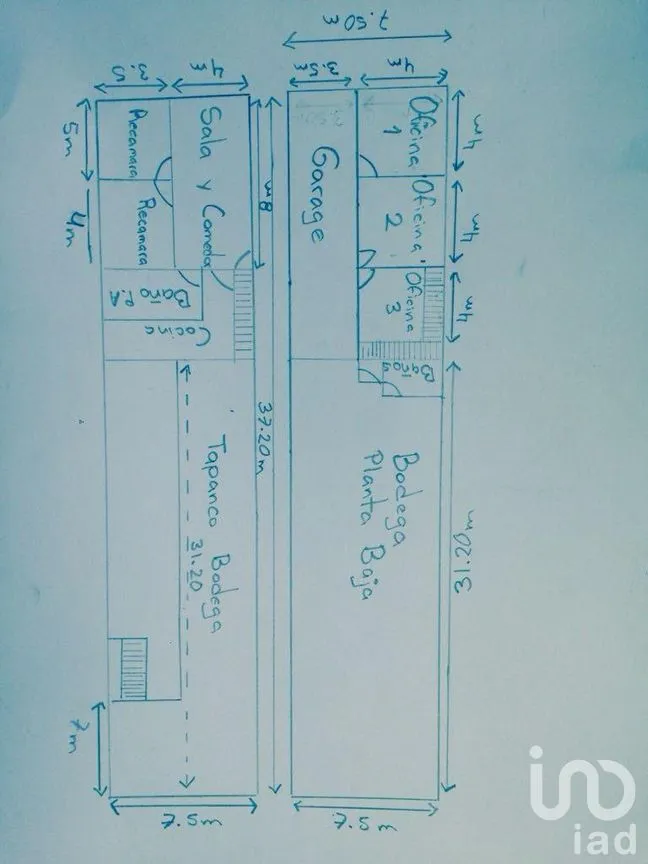 7.50 m
3.5m
4m
Oficina
1
4m
Oficina
2
4m
Oficina
3
4m
Garage
Baños
Bodega
Planta Baja
31.20m
7.5m
3.5
4m
Sala y Comedor
8m
Recamara
5m
Recamara
4m
Baño
P.A
Cocina
37.20m
Tapanco Bodega
31.20
7m
7.5m
iad